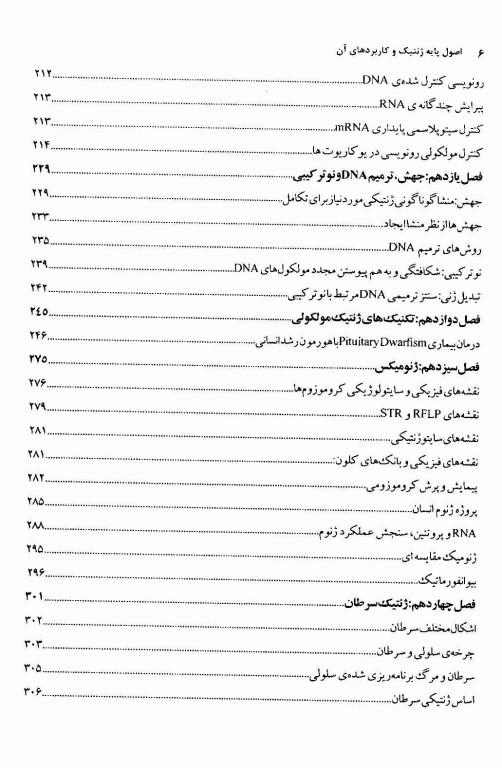 ۶ اصول پایه ژنتیک و کاربردهای آن
رونویسی کنترل شده‌ی DNA ۲۱۲
پیرایش چندگانه ی RNA ۲۱۳
کنترل سیتوپلاسمی پایداری mRNA ۲۱۳
کنترل مولکولی رونویسی در یوکاریوت ها ۲۱۴
فصل یازدهم: جهش، ترمیم DNA و نوترکیبی ۲۲۹
جهش: منشا گوناگونی ژنتیکی مورد نیاز برای تکامل ۲۲۹
جهش ها از نظر منشا ایجاد ۲۳۳
روش های ترمیم DNA ۲۳۵
نوترکیبی: شکافتگی و به هم پیوستن مجدد مولکول های DNA ۲۳۹
تبدیل ژنی: سنتز ترمیمی DNA مرتبط با نوترکیبی ۲۴۲
فصل دوازدهم: تکنیک های ژنتیک مولکولی ۲۴۵
درمان بیماری Pituitary Dwarfism با هورمون رشد انسانی ۲۴۶
فصل سیزدهم: ژنومیکس ۲۷۵
نقشه های فیزیکی و سایتولوژیکی کروموزوم ها ۲۷۶
نقشه های RFLP و STR ۲۷۹
نقشه های سایتوژنتیکی ۲۸۱
نقشه های فیزیکی و بانک های کلون: ۲۸۱
پیمایش و پرش کروموزومی ۲۸۲
پروژه ژنوم انسان ۲۸۵
RNA و پروتئین، سنجش عملکرد ژنوم ۲۸۸
ژنومیک مقایسه ای ۲۹۵
بیوانفورماتیک ۲۹۶
فصل چهاردهم: ژنتیک سرطان ۳۰۱
اشکال مختلف سرطان ۳۰۲
چرخه ی سلولی و سرطان ۳۰۳
سرطان و مرگ برنامه ریزی شده ی سلولی ۳۰۵
اساس ژنتیکی سرطان ۳۰۶